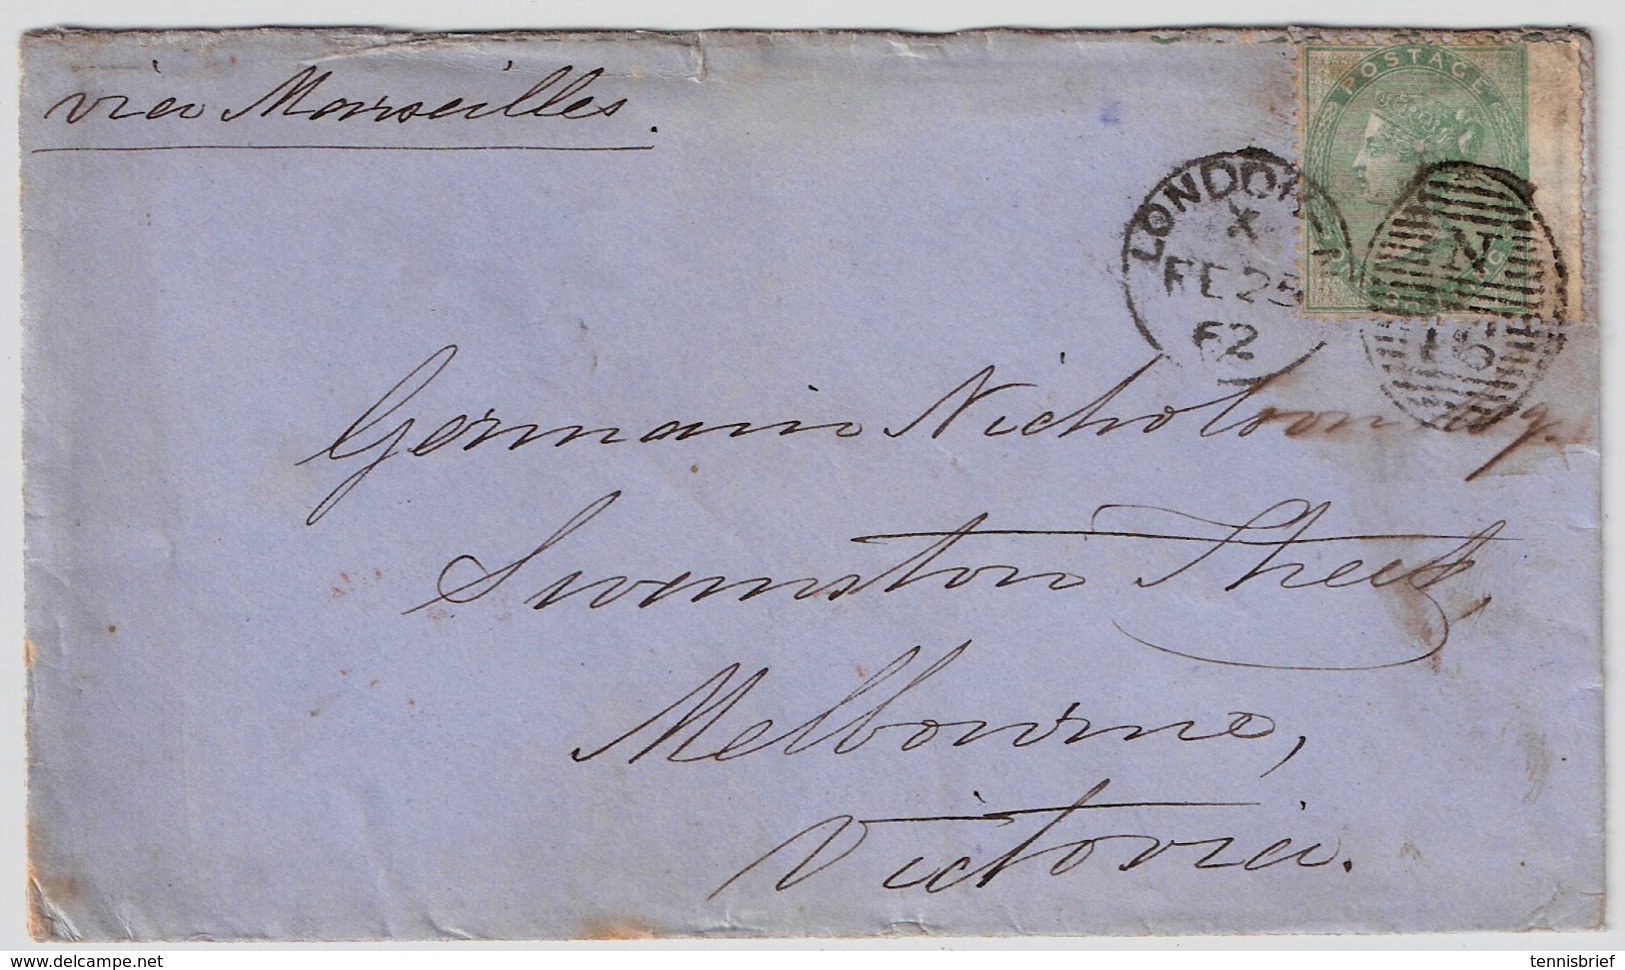 via Marseilles.
POSTAGE
LONDON
X
FE 25
62
N
16
Germain Nicholson Esq.
Swanston Street,
Melbourne,
Victoria.
www.delcampe.net
tennisbrief